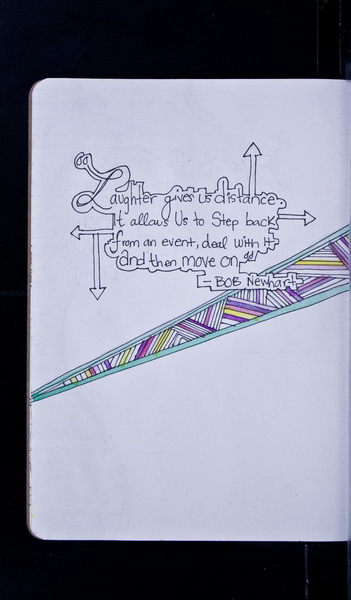 Laughter gives us distance.
It allows Us to Step back
from an event, deal with it
and then move on."
BOB Newhart